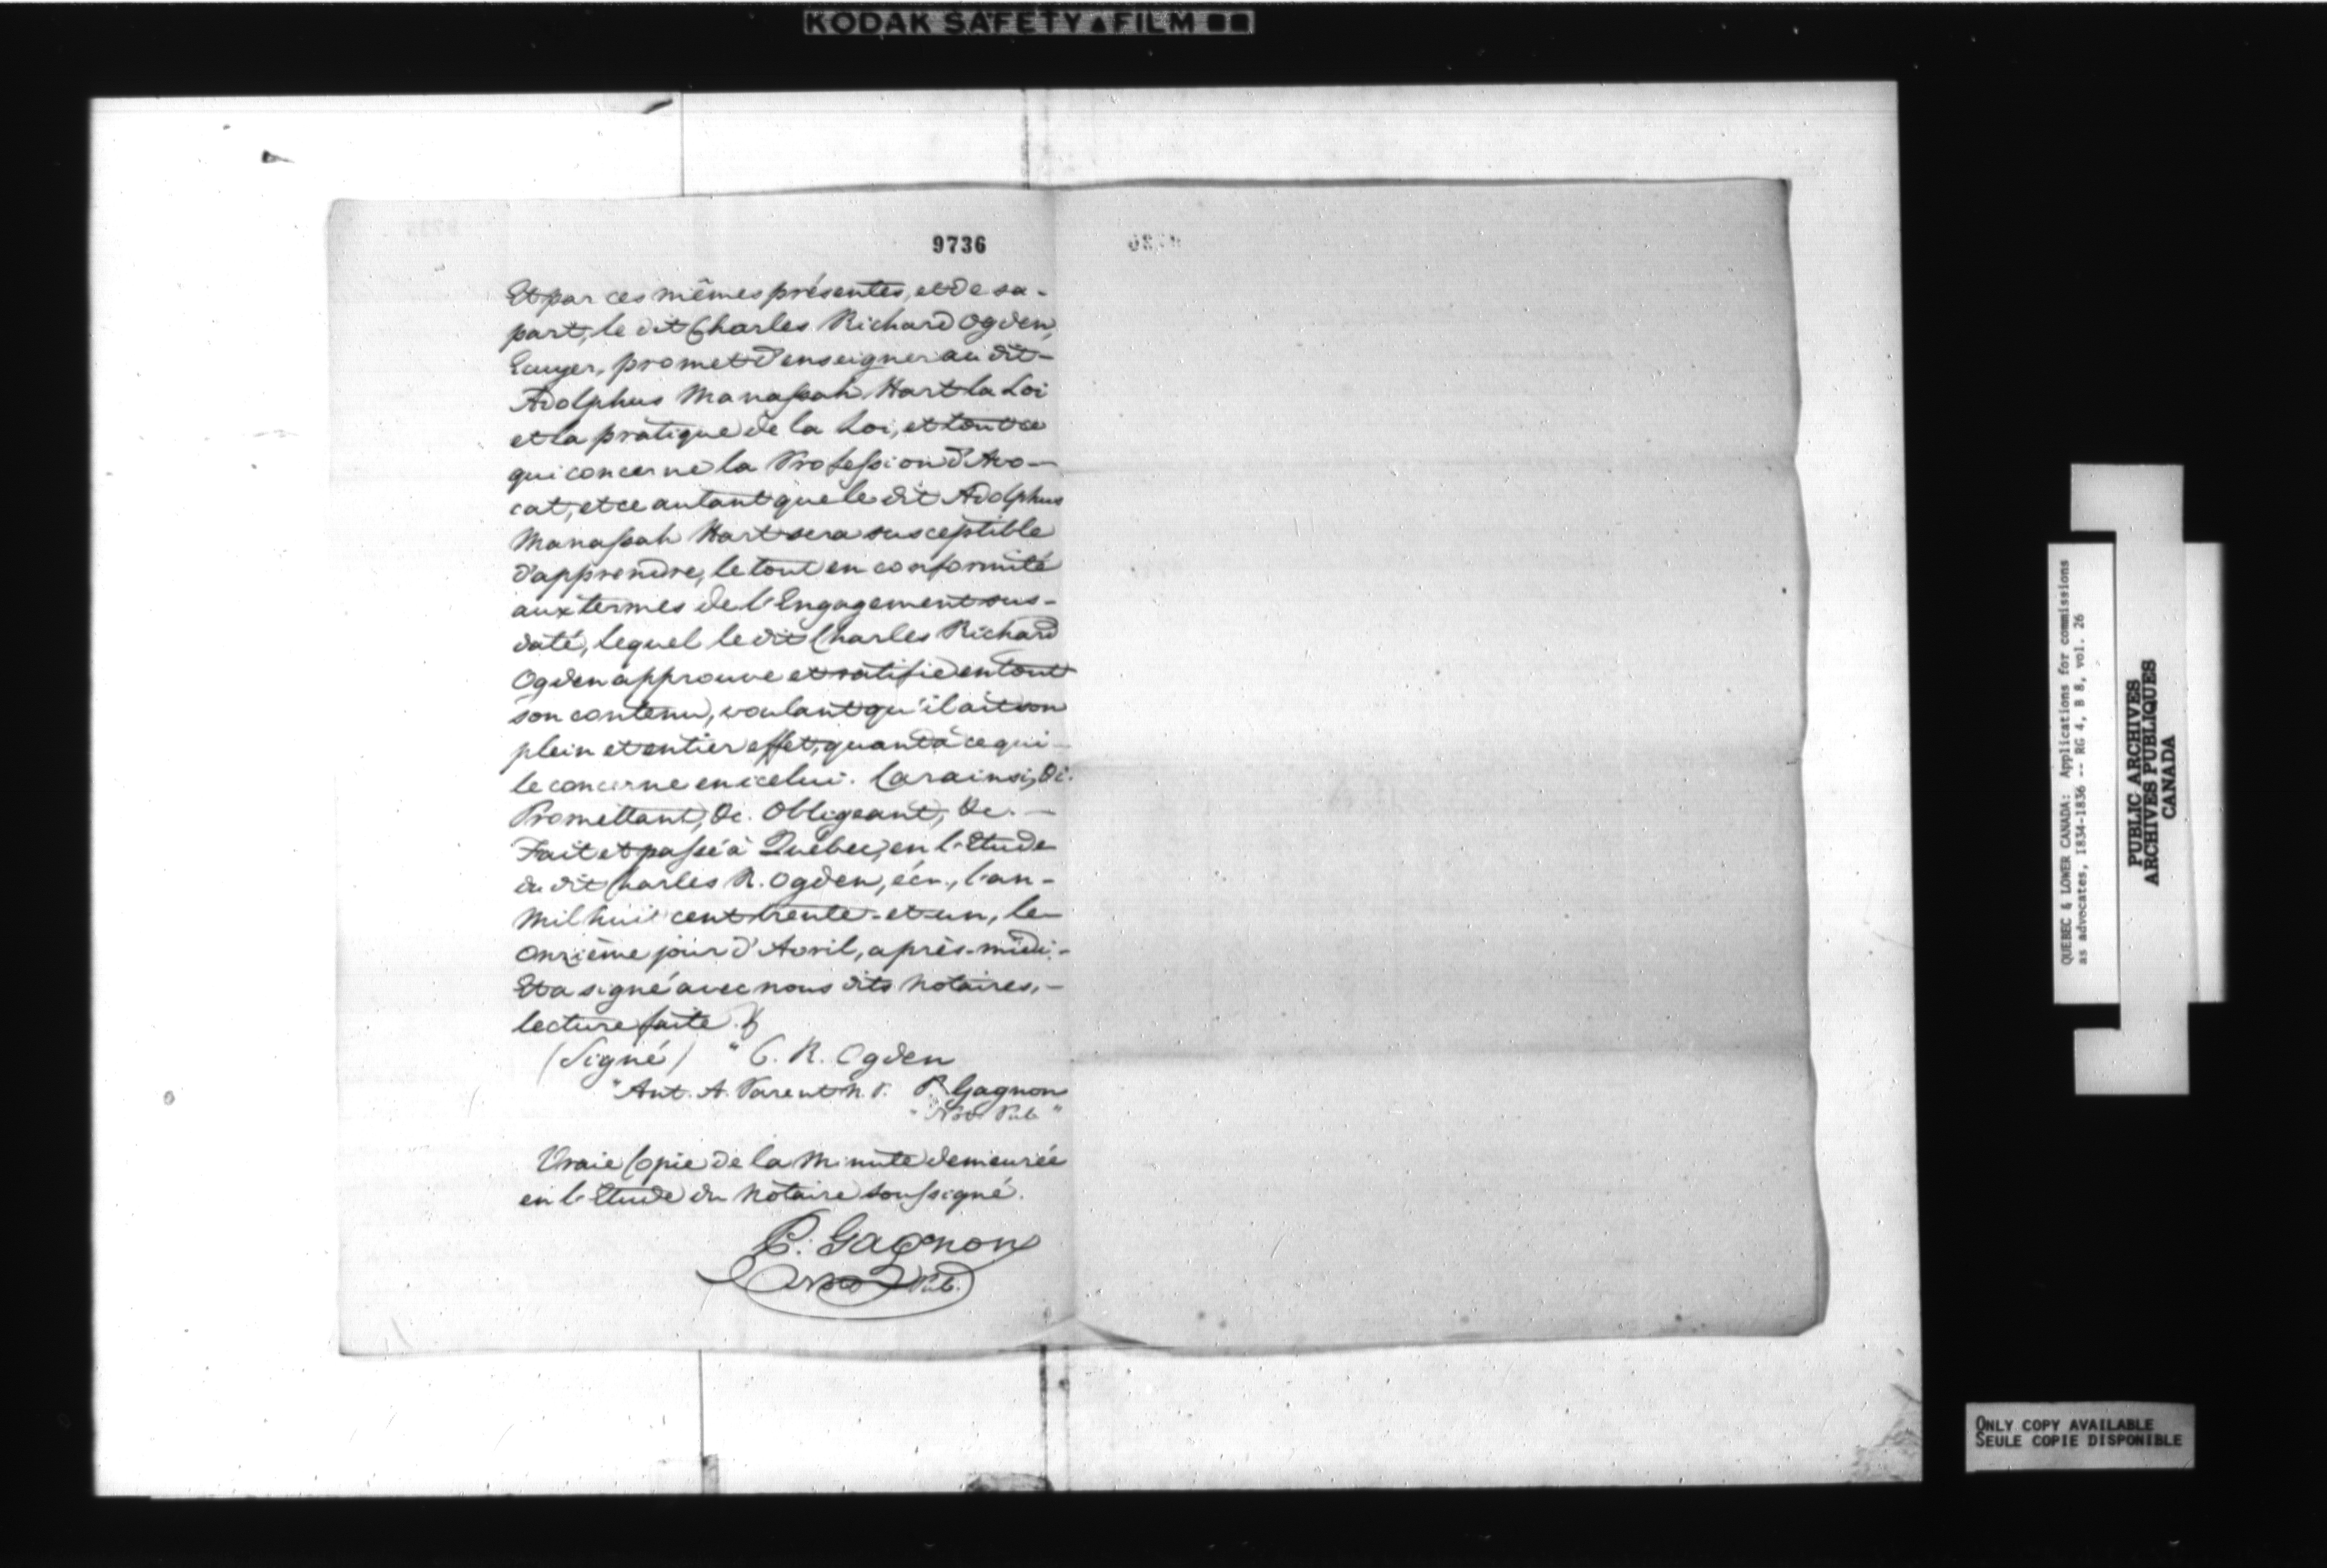 KODAK SAFETY FILM
9736
Et par ces mêmes présentes, et de sa-
part, le dit Charles Richard Ogden,
Ecuyer, promet d'enseigner au dit-
Adolphus Manassah Hart la Loi
et la pratique de la Loi, et tout ce
qui concerne la Profession d'Avo-
cat, et ce autant que le dit Adolphus
Manassah Hart sera susceptible
d'apprendre, le tout en conformité
aux termes de l'Engagement sus-
daté, lequel le dit Charles Richard
Ogden approuve et ratifie en tout
son contenu, voulant qu'il ait son
plein et entier effet, quant à ce qui-
le concerne en icelui. Car ainsi, &c.
Promettant, &c. Obligeant, &c. —
Fait et passé à Québec, en l'Etude
du dit Charles R. Ogden, écr., l'an-
mil huit cent trente-et-un, le-
onzième jour d'Avril, après-midi,-
Et a signé avec nous dits Notaires,-
lecture faite.
(Signé) " C. R. Ogden
"Ant. A. Parent N. P. P. Gagnon
"Not. Pub"
Vraie Copie de la Minute demeurée
en l'Etude du Notaire soussigné.
P. Gagnon
Not. Pub.
QUEBEC & LOWER CANADA: Applications for commissions
as advocates, 1834-1836 -- RG 4, B 8, vol. 26
PUBLIC ARCHIVES
ARCHIVES PUBLIQUES
CANADA
ONLY COPY AVAILABLE
SEULE COPIE DISPONIBLE